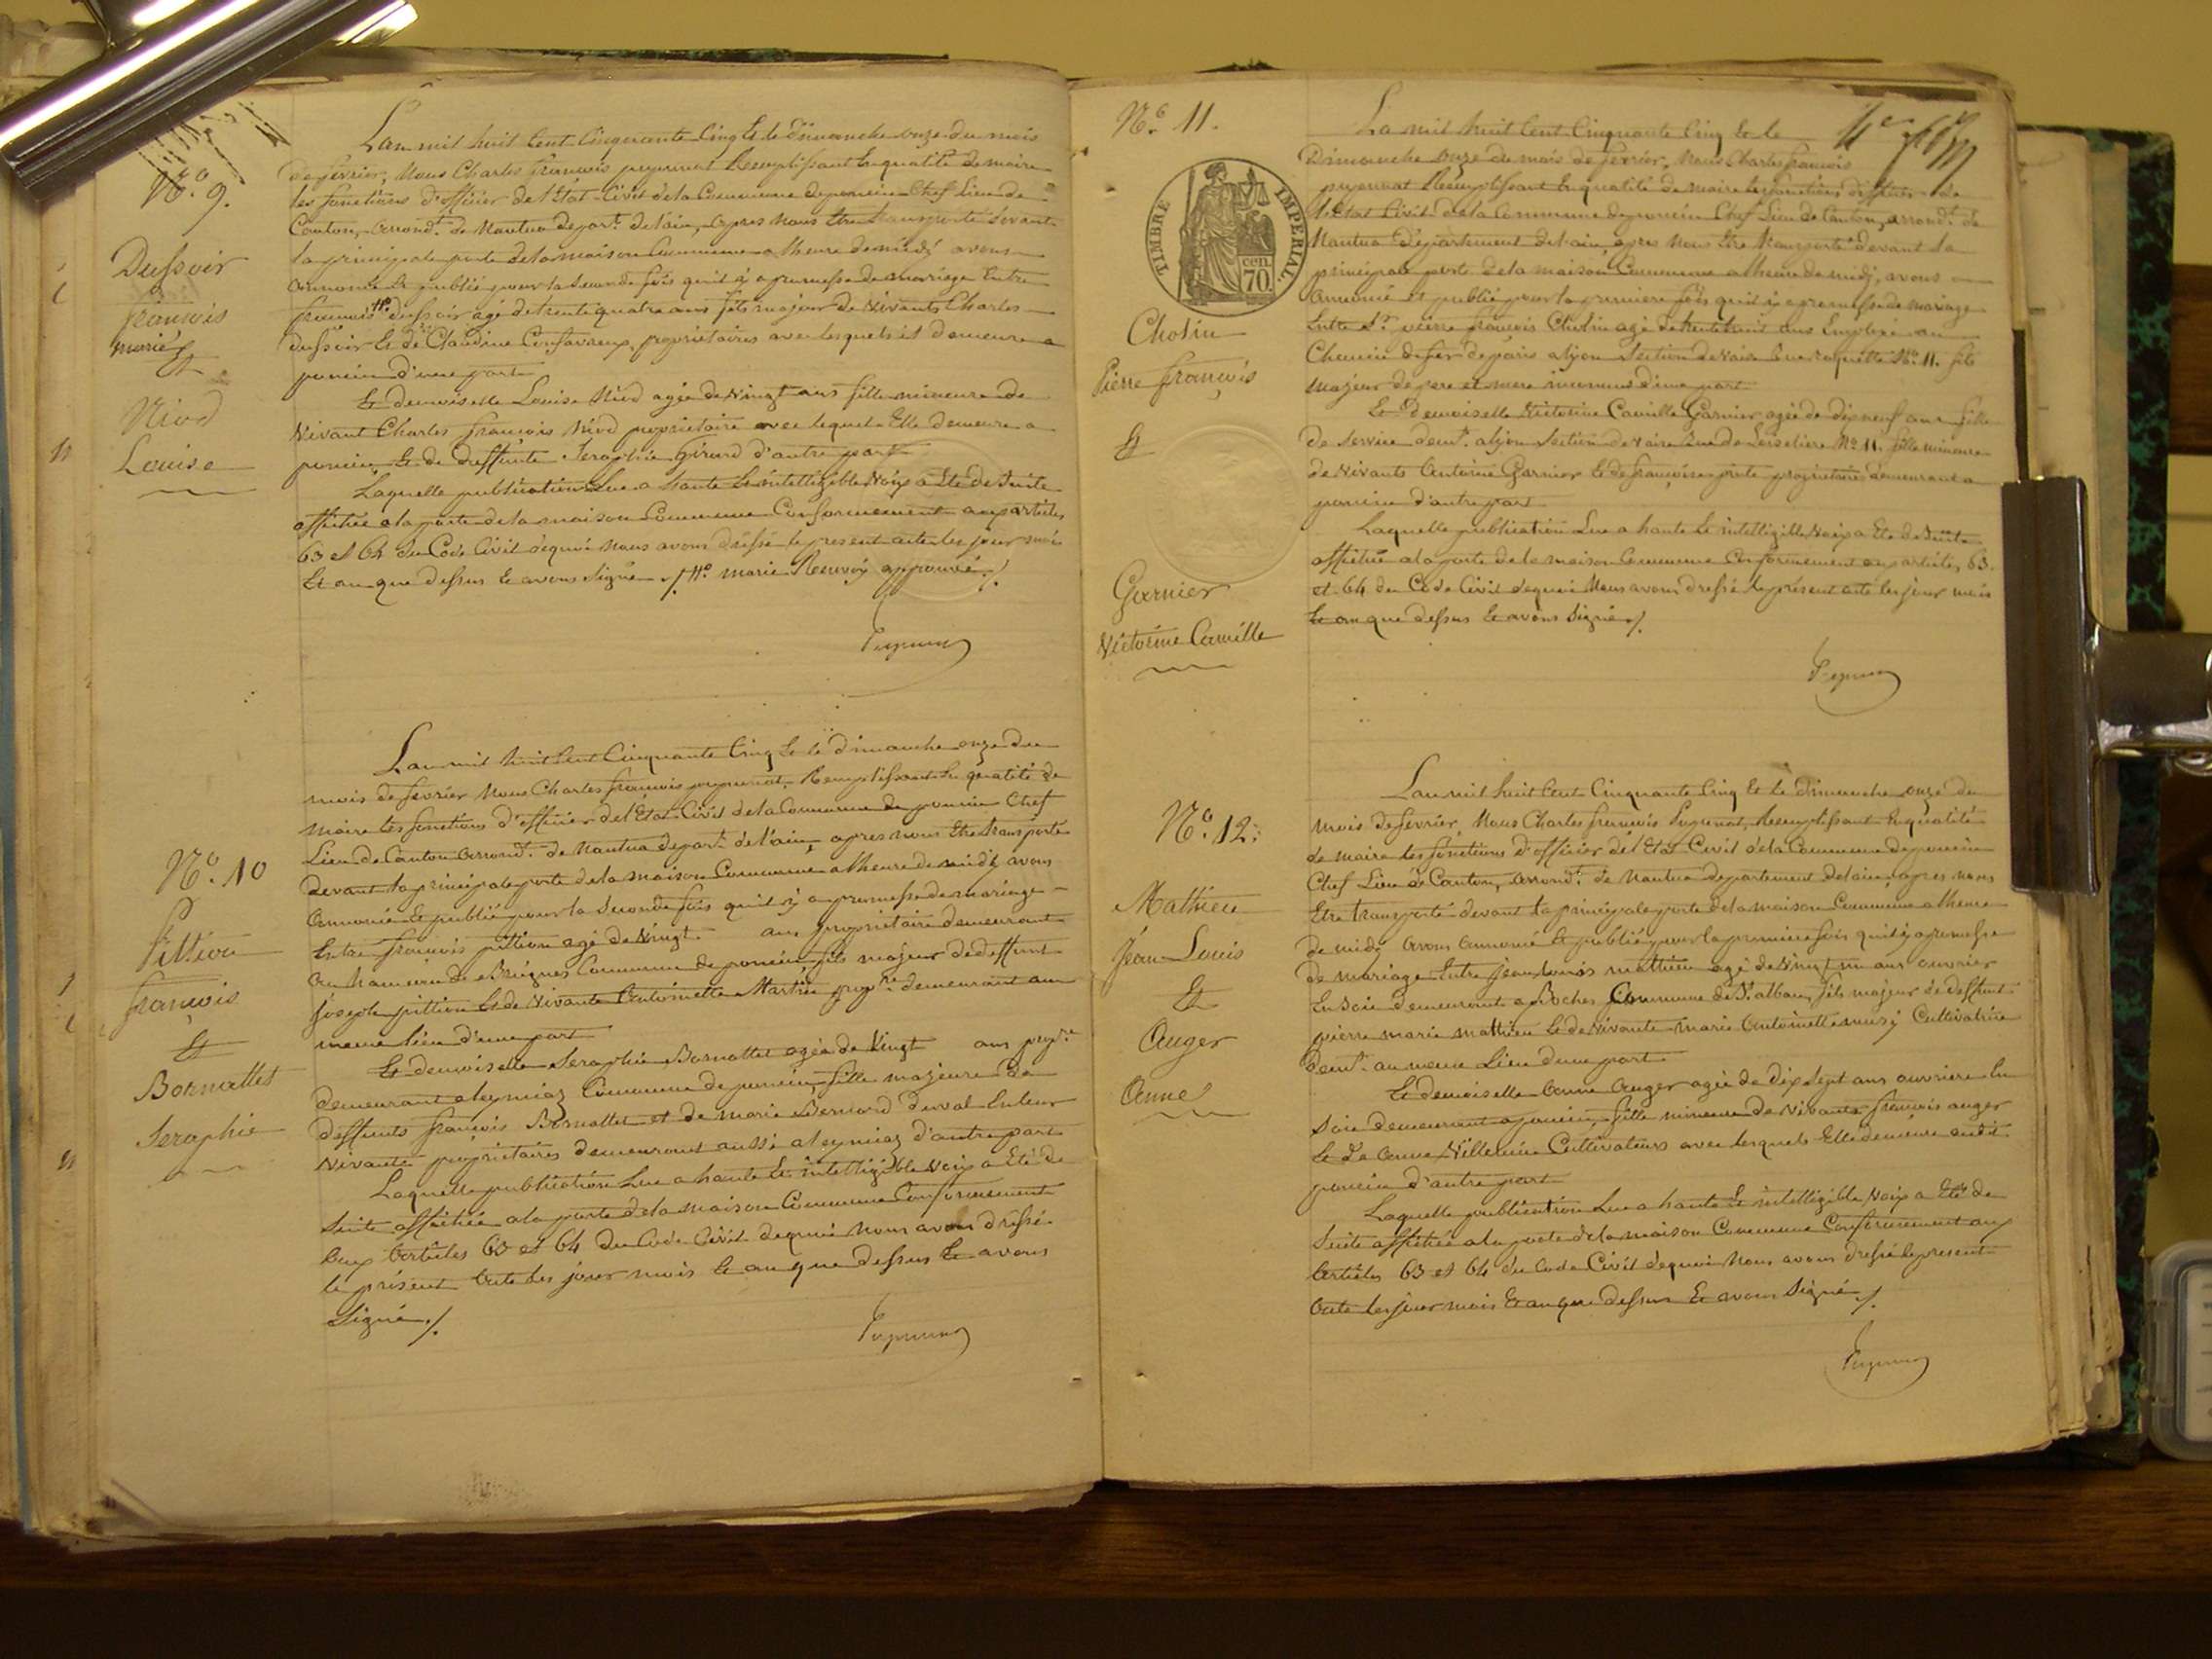 N.o 9.
Dufsoir
françois
marie
Et
Niod
Louise
L'an mil huit Cent Cinquante Cinq & le dimanche onze du mois
de fevrier, Nous Charles françois pugunat Remplifsant En qualité de maire
les fonctions d'officier de l'Etat-Civil de la Commune de poncin Chef Lieu de
Canton, arrond.t de Nantua depar.t de l'ain, apres nous Etre transporté devant
la principale porte de la maison Commune a lheure de midi avons
annoncé & publié pour la seconde fois quil y a promefse de mariage Entre
françois #.o dufsoir agé de trente quatre ans fils majeur de vivants Charles
dufsoir & de Claudine Confavreux, propriétaires avec lesquels il demeure a
poncin d'une part
Et demoiselle Louise Niod agée de Vingt ans fille mineure de
Vivant Charles françois Niod proprietaire avec lequel Elle demeure a
poncin & de deffunte Seraphie Girard d'autre part
Laquelle publication Lue a haute & intelligible Voix a Eté de Suite
affichée a la porte de la maison Commune Conformement aux articles
63 et 64 du Code Civil dequoi nous avons drefsé le present acte les jour mois
Et an que defsus & avons Signé ./. #.o marie Renvoy approuvé ./.
N.o 10
Pittion
françois
Et
Bornallet
Seraphie
L'an mil huit Cent Cinquante Cinq & le dimanche onze du
mois de fevrier Nous Charles françois pugunat, Remplifsant En qualité de
maire les fonctions d'officier de l'Etat Civil de la Commune de poncin Chef
Lieu de Canton arrond.t de Nantua depar.t de l'ain, apres nous Etre transporté
devant la principale porte de la maison Commune a lheure de midi, avons
annoncé & publié pour la seconde fois quil y a promefse de mariage
Entre françois pittion agé de Vingt ans proprietaire demeurant
au hameau de Commune de poncin, fils majeur de deffunt
joseph pittion & de Vivante Antoinette Martin prop.re demeurant au
meme lieu d'une part
Et demoiselle Seraphie Bornallet agée de Vingt ans prop.re
demeurant a leymiaz Commune de poncin, fille majeure de
deffunts françois Bornallet et de marie Bernard duval
Vivants proprietaires demeurant aussi a leymiaz d'autre part
Laquelle publication Lue a haute & intelligible Voix a Eté de
Suite affichée a la porte de la maison Commune Conformement
aux articles 63 et 64 du Code Civil dequoi Nous avons drefsé
le présent acte les jour mois & an que defsus & avons
Signé ./.
N.o 11.
TIMBRE IMPERIAL
cen.
70
Cholin
Pierre françois
Et
Garnier
Victorine Camille
La mil huit Cent Cinquante Cinq & le
Dimanche onze du mois de fevrier, Nous Charles françois
puyunat Remplifsant En qualité de maire les fonctions d'officier de
l'Etat Civil de la Commune de poncin Chef Lieu de Canton, arrond.t de
Nantua département de l'ain, apres nous Etre transporté devant la
principale porte de la maison Commune a lheure de midi, avons
annoncé & publié pour la premiere fois quil y a promefse de mariage
Entre S.r pierre françois Cholin agé de ans Employé au
Chemin de fer de paris a lyon section de Vaise N.o 11. fils
majeur de pere et mere inconnus d'une part
Et Demoiselle Victorine Camille Garnier agée de dix neuf ans fille
de service dem.t a lyon section de Vaise Rue de N.o 11. fille mineure
de Vivants Antoine Garnier & de françoise proprietaires demeurant a
poncin d'autre part
Laquelle publication Lue a haute & intelligible Voix a Eté de Suite
affichée a la porte de la maison Commune Conformement aux articles 63.
et 64 du Code Civil dequoi Nous avons drefsé le présent acte les jour mois
& an que defsus & avons Signé ./.
N.o 12.
Mathieu
Jean Louis
Et
Auger
Anne
L'an mil huit Cent Cinquante Cinq & le dimanche onze du
mois de fevrier, Nous Charles françois Puyunat, Remplifsant En qualité
de maire les fonctions d'officier de l'Etat Civil de la Commune de poncin
Chef Lieu de Canton, arrond.t de Nantua departement de l'ain, apres nous
Etre transporté devant la principale porte de la maison Commune a lheure
de midi avons annoncé & publié pour la premiere fois quil y a promefse
de mariage Entre jean Louis mathieu agé de Vingt un ans ouvrier
En soie demeurant a Roches Commune de S.t alban, fils majeur de deffunt
pierre marie mathieu & de Vivante marie Antoinette Cultivatrice
dem.t au meme Lieu d'une part
Et demoiselle Anne Auger agée de dix Sept ans ouvriere En
Soie demeurant a poncin, fille mineure de Vivants françois auger
& de Anne Villemin Cultivateurs avec lesquels Elle demeure audit
poncin d'autre part
Laquelle publication Lue a haute & intelligible Voix a Eté de
Suite affichée a la porte de la maison Commune Conformement aux
articles 63 et 64 du Code Civil dequoi Nous avons drefsé le present
acte les jour mois & an que defsus & avons Signé ./.